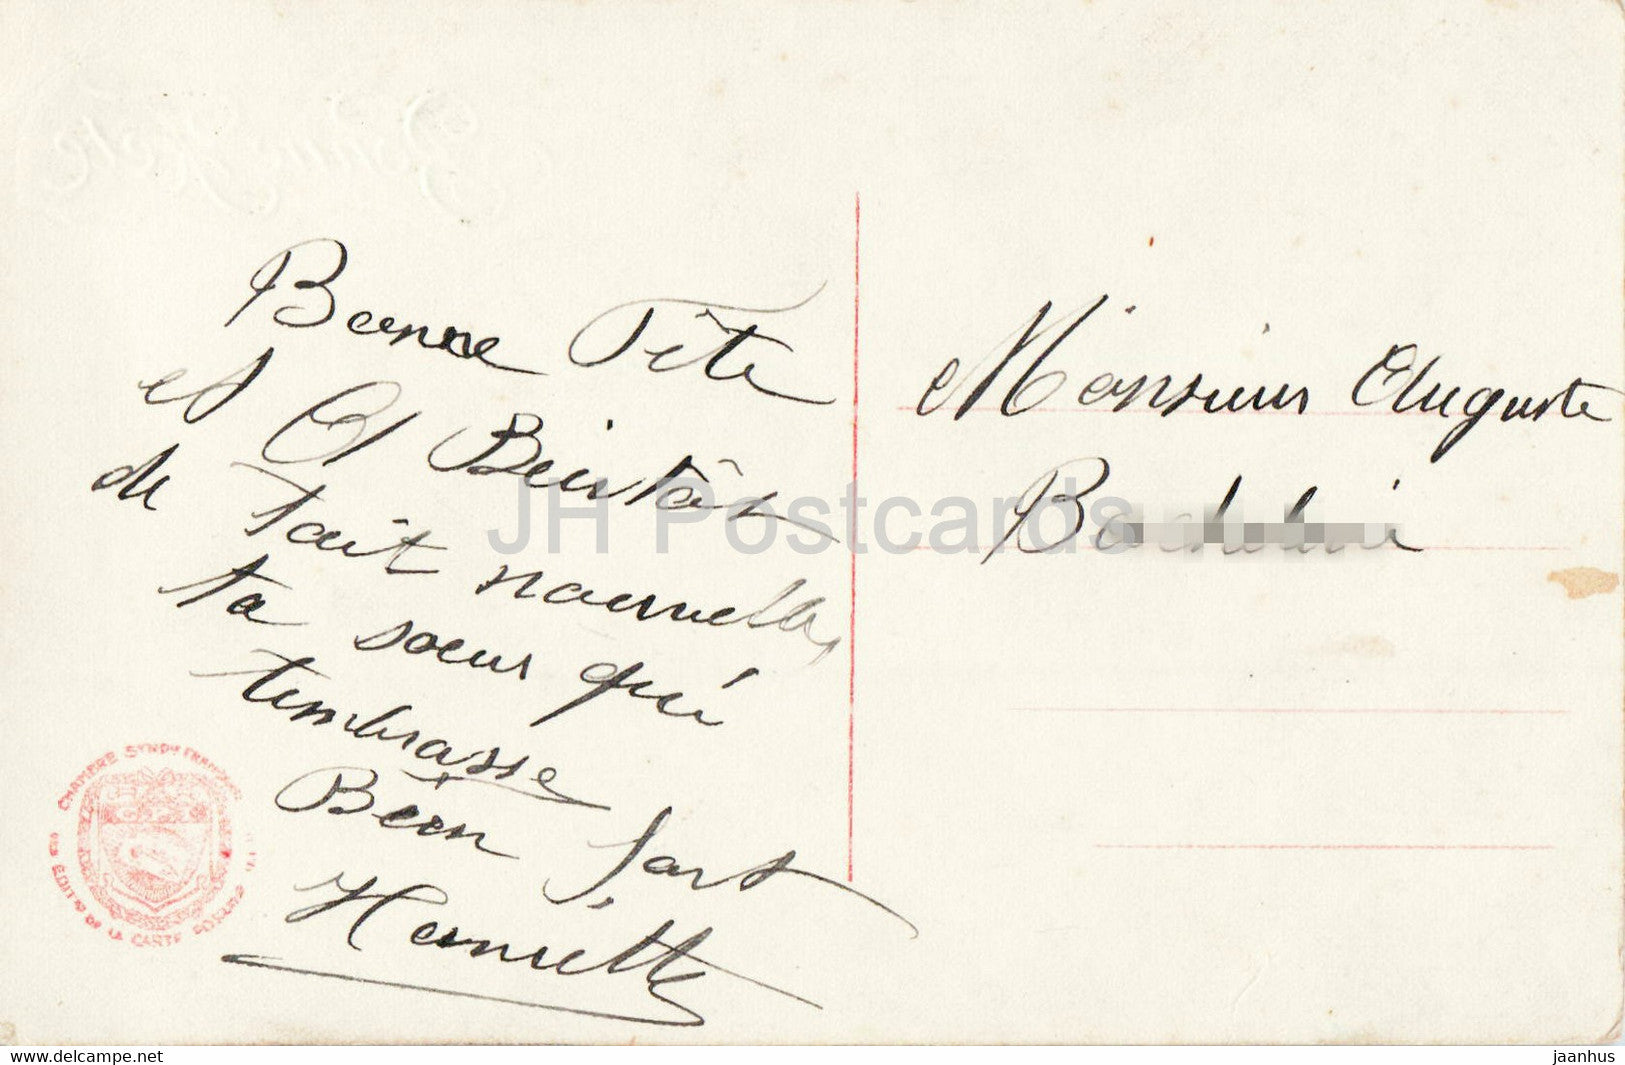 Bonne Fête
et A Bientôt
de tait nouvelles
ta soeur qui
tembrasse
Bien fort
Henriette
Monsieur Auguste
JH Postcards
CHAMBRE SYNDLE FRANÇAISE
DES ÉDITRS DE LA CARTE POSTALE
Bonne Fête
delcampe.net
jaanhus